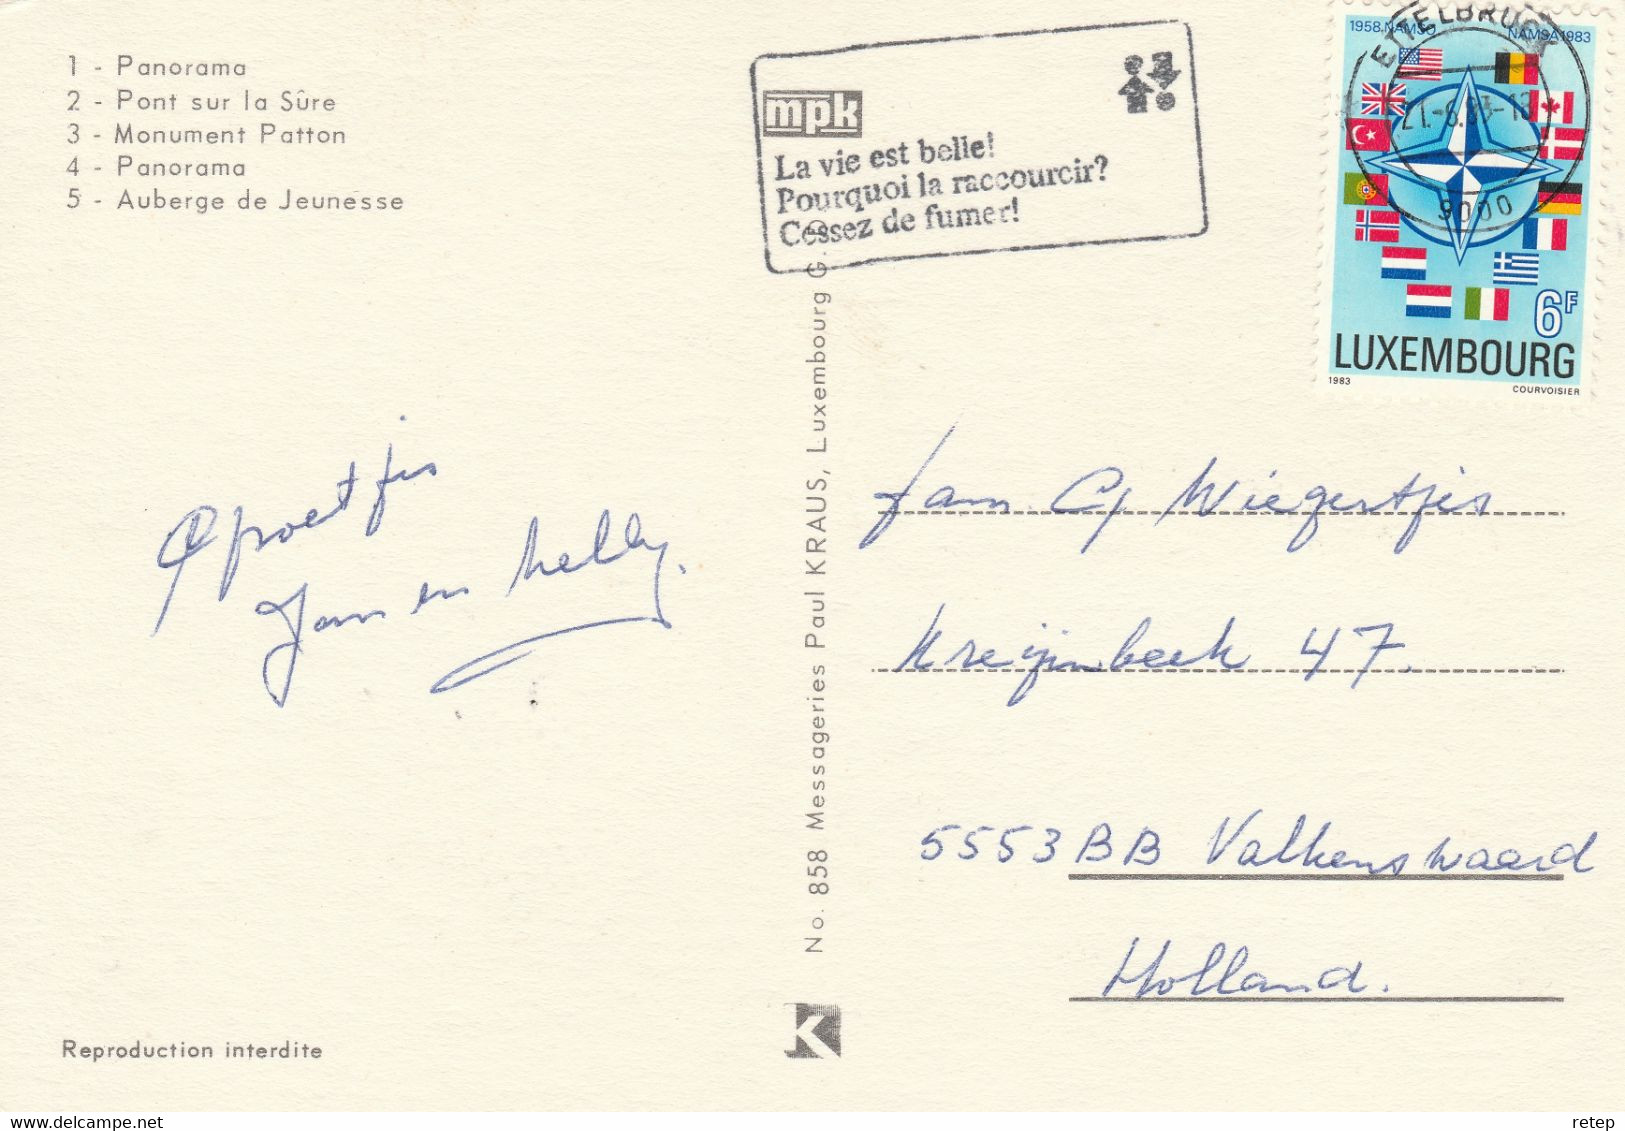 1 - Panorama
2 - Pont sur la Sûre
3 - Monument Patton
4 - Panorama
5 - Auberge de Jeunesse
mpk
La vie est belle!
Pourquoi la raccourcir?
Cessez de fumer!
ETTELBRUCK
9000
1958 NAMSO NAMSA 1983
6F
LUXEMBOURG
1983 COURVOISIER
Groetjes
Jan en Nelly.
No. 858 Messageries Paul KRAUS, Luxembourg G.
Fam. Wiegertjes
Kreijenbeek 47.
5553 BB Valkenswaard
Holland.
K
Reproduction interdite
delcampe.net
retep